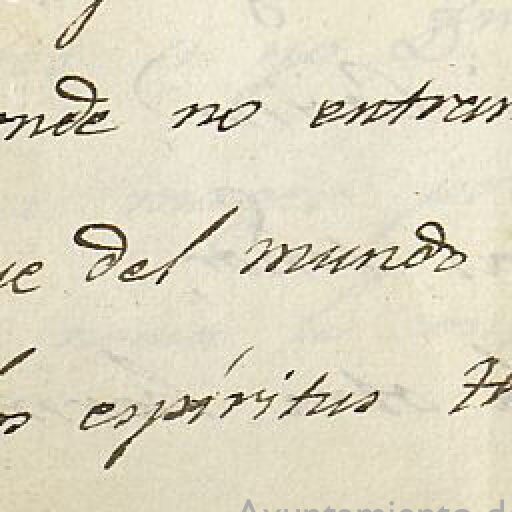 onde no entran
ue del mundo
os espíritus
Ayuntamiento de